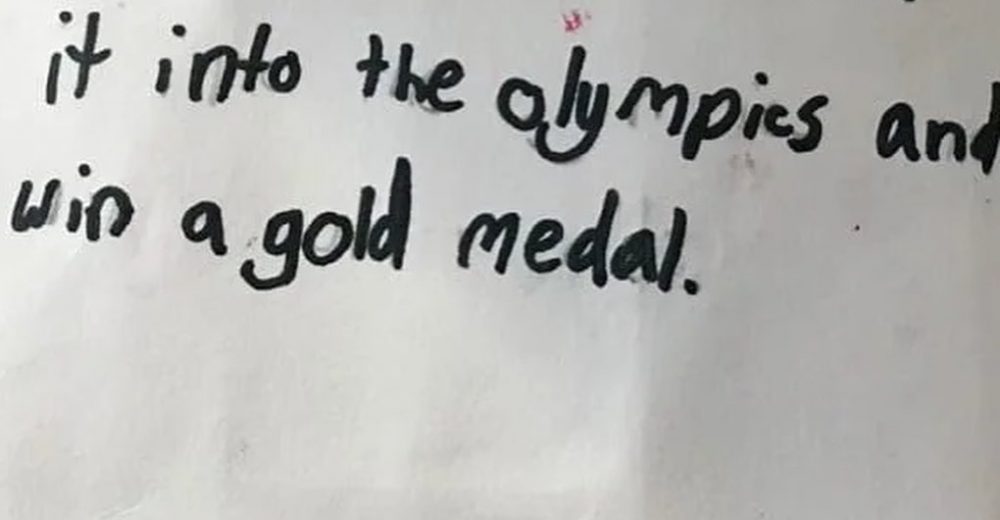 it into the olympics and
win a gold medal.